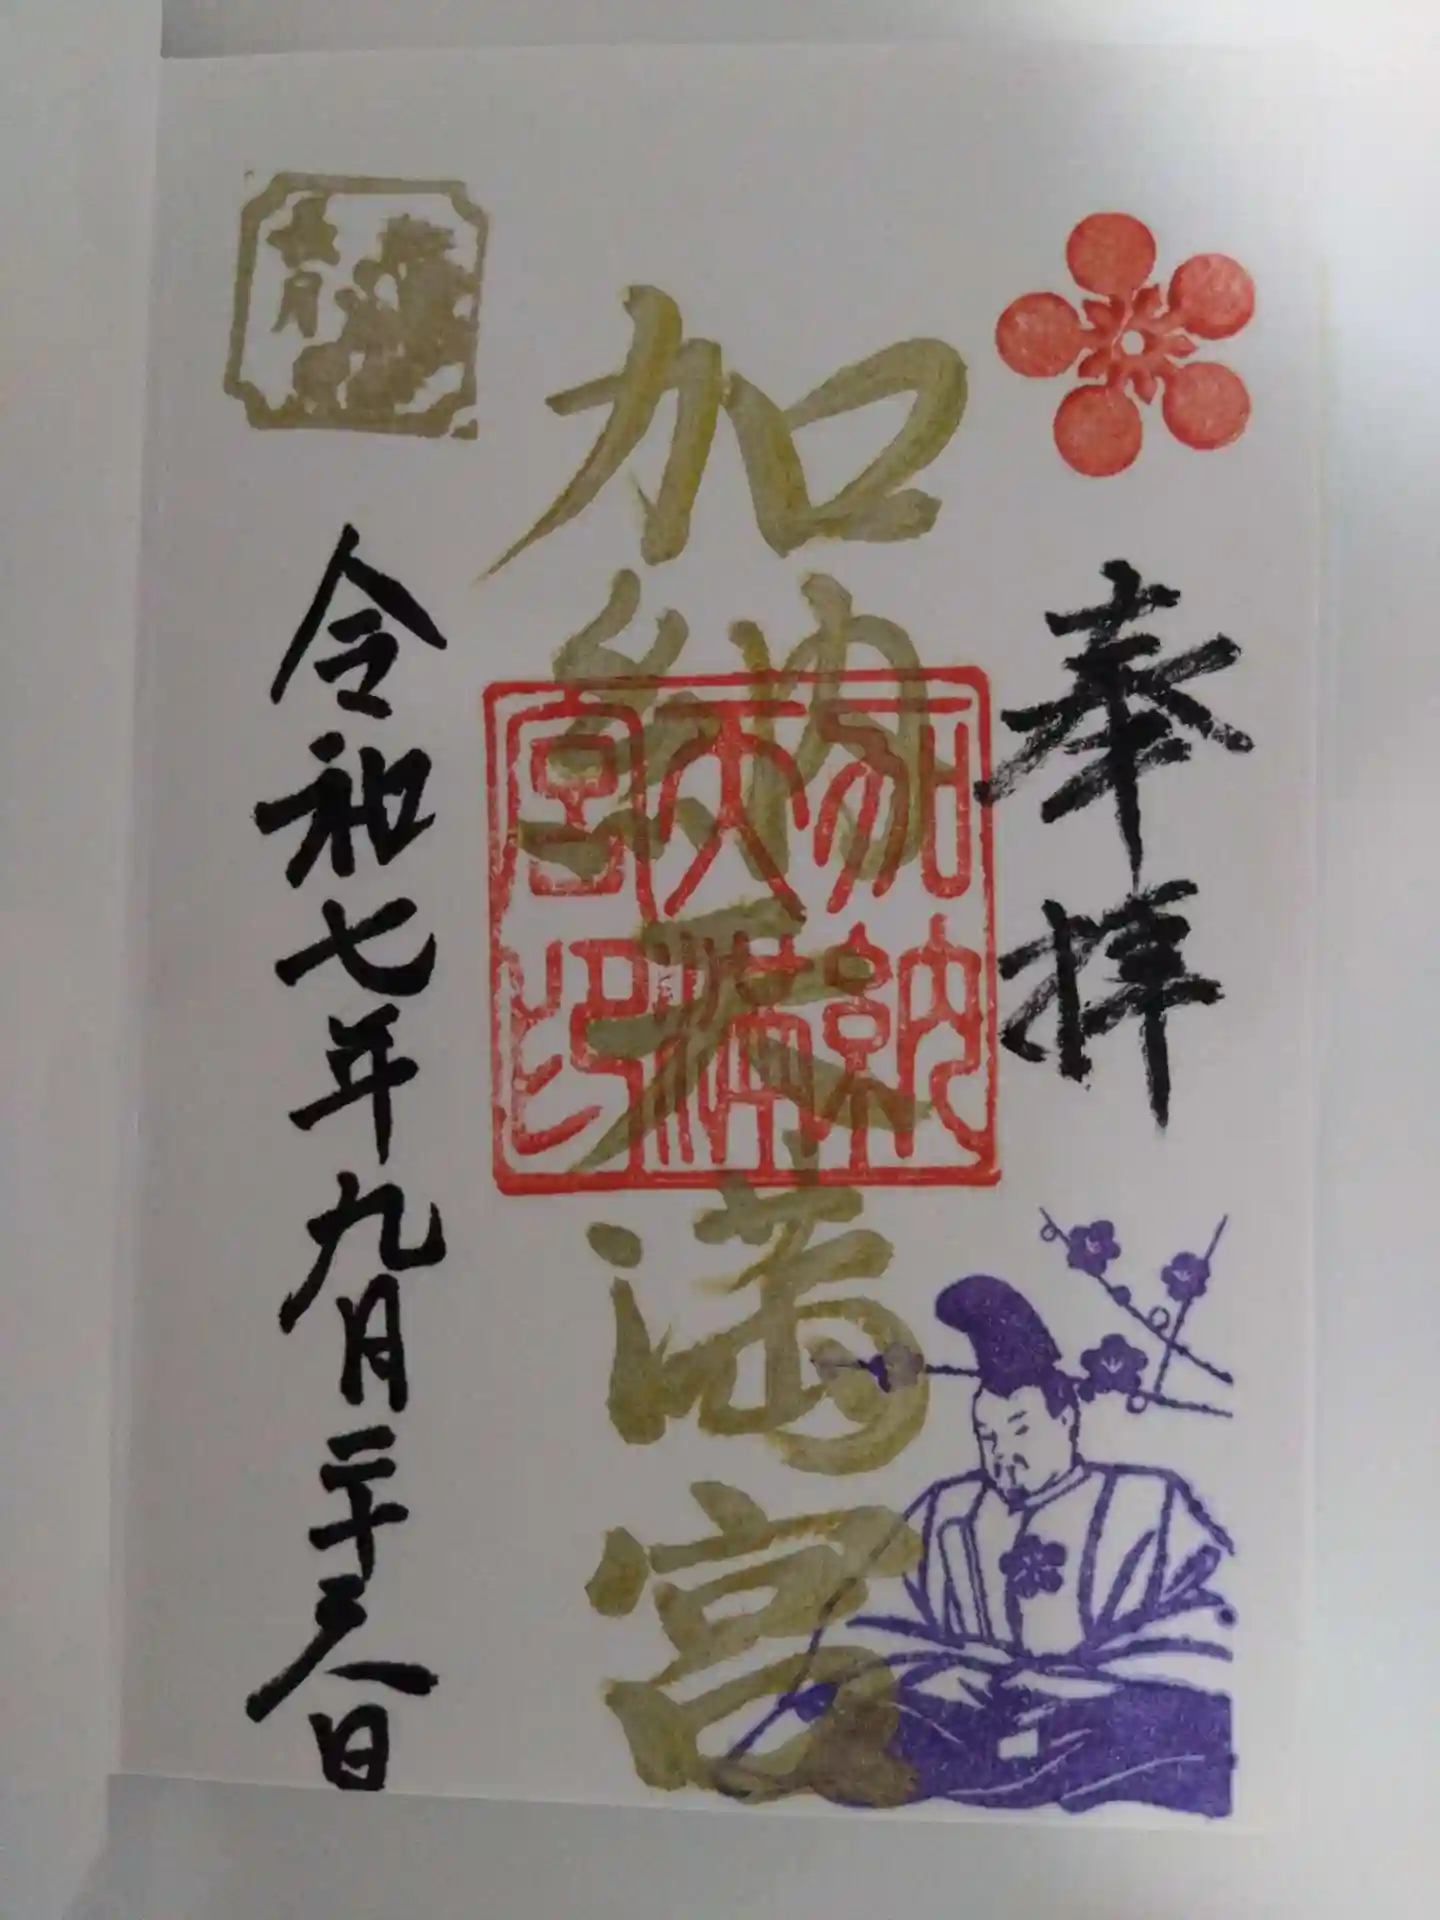 奉拝
加納天満宮
加納
天満
宮印
長月
令和七年九月二十日